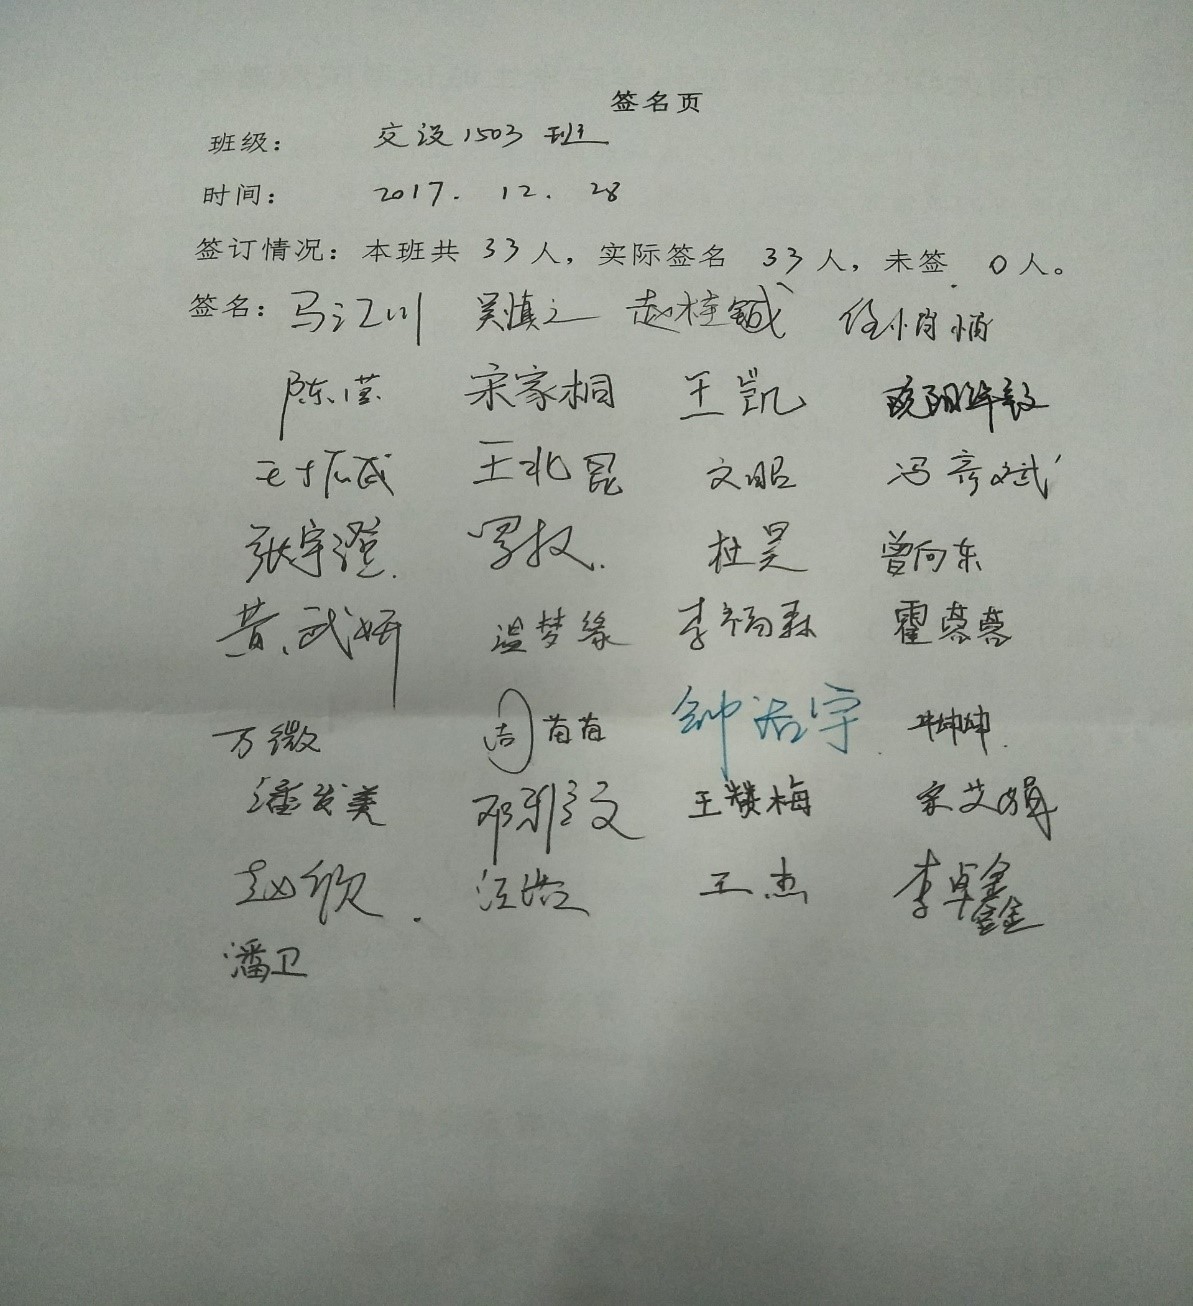 签名页
班级： 交设1503班
时间： 2017. 12. 28
签订情况：本班共 33 人，实际签名 33 人，未签 0 人。
签名：马江川 吴慎之 赵桂铖 任悄悄
陈谨 宋家桐 王凯
王振武 王北昆 文昭 冯彦斌
张宇澄 罗权 杜昊 曾向东
黄武妍 温梦缘 李福森 霍蓉蓉
万微 周苗苗 钟浩宇 坤坤
潘发美 邓雅文 王赞梅 宋艾娟
赵欣 汪浩 王杰 李卓鑫
潘卫